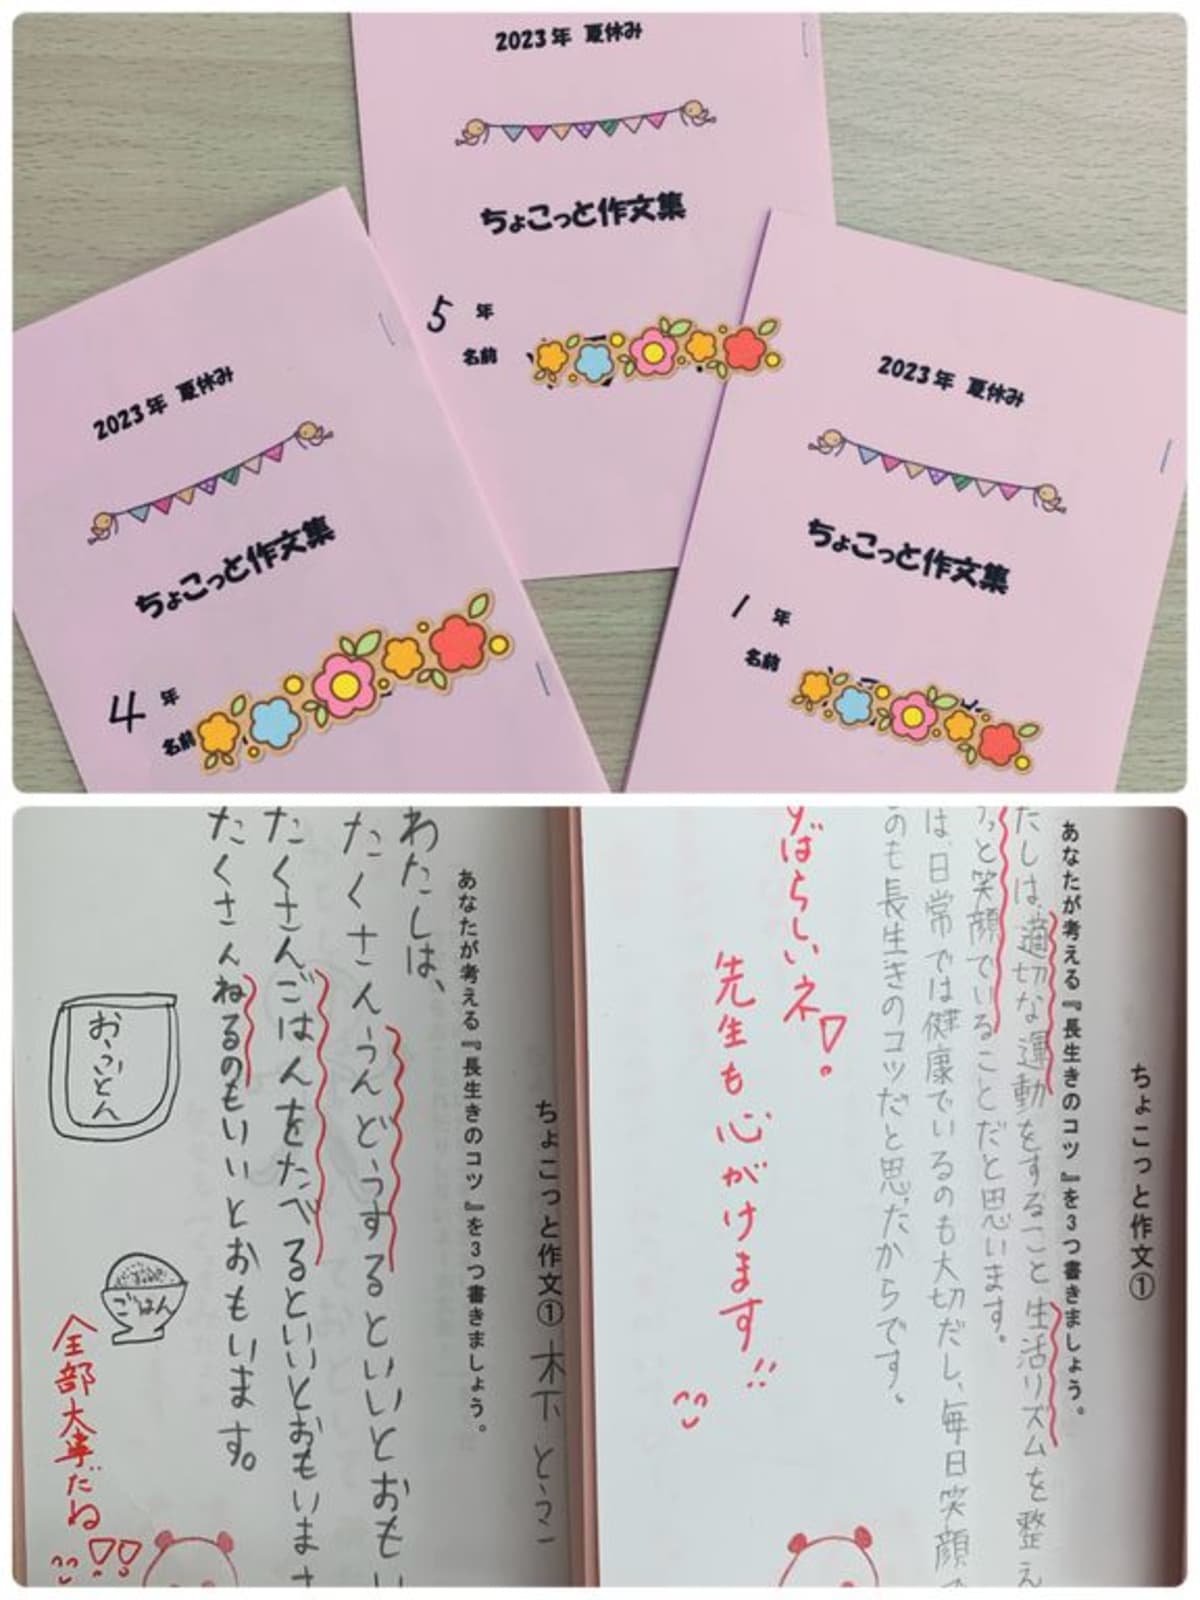 2023年 夏休み
ちょこっと作文集
5 年
名前
2023年 夏休み
ちょこっと作文集
4 年
名前
2023年 夏休み
ちょこっと作文集
1 年
名前
ちょこっと作文①
あなたが考える『長生きのコツ』を3つ書きましょう。
たしは、適切な運動をすること 生活リズムを整え
っと笑顔でいることだと思います。
は、日常では健康でいるのも大切だし、毎日笑顔で
のも長生きのコツだと思だからです。
ばらしいネ♡。
先生も心がけます!!
ちょこっと作文① 木下
あなたが考える『長生きのコツ』を3つ書きましょう。
わたしは、
たくさんうんどうするといいとおも
たくさんごはんをたべるといいとおもいま
たくさんねるのもいいとおもいます。
おふとん
ごはん
全部大事だね